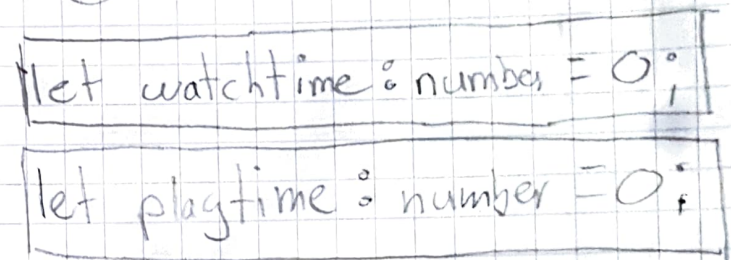 let watchtime : number = 0;
let playtime : number = 0;